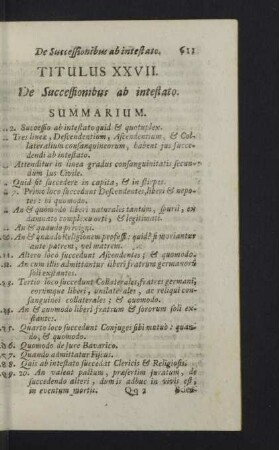 De Successionibus ab intestato. 611
TITULUS XXVII.
De Successionibus ab intestato.
SUMMARIUM.
2. Successio ab intestato quid & quotuplex.
Tres lineæ, Descendentium, Ascendentium, & Col-
lateralium consanquineorum, habent jus succe-
dendi ab intestato.
Attenditur in linea gradus consanguinitatis secun-
dùm Jus Civile.
Quid sit succedere in capita, & in stirpes.
7. Primo loco succedunt Descendentes, liberi & nepo-
tes: & quomodo.
An & quomodo liberi naturales tantùm, spurii, ex
damnato complexu orti, & legitimati.
An & quando privigni.
10. An & quando Religionem professi: quid si moriantur
ante patrem, vel matrem.
11. Altero loco succedunt Ascendentes; & quomodo.
An cum illis admittantur liberi fratrum germanorum
soli exstantes.
Tertio loco succedunt Collaterales, fratres germani,
eorúmque liberi, unilaterales, ac reliqui con-
sanguinei collaterales; & quomodo.
An & quomodo liberi fratrum & sororum soli ex-
stantes.
Quarto loco succedunt Conjuges sibi mutuò: quan-
do, & quomodo.
6. Quomodo de Jure Bavarico.
7. Quando admittatur Fiscus.
8. Quis ab intestato succedat Clericis & Religiosis.
9. 20. An valeat pactum, præsertim juratum, de
succedendo alteri, dum is adhuc in vivis est,
in eventum mortis.
Qq 2